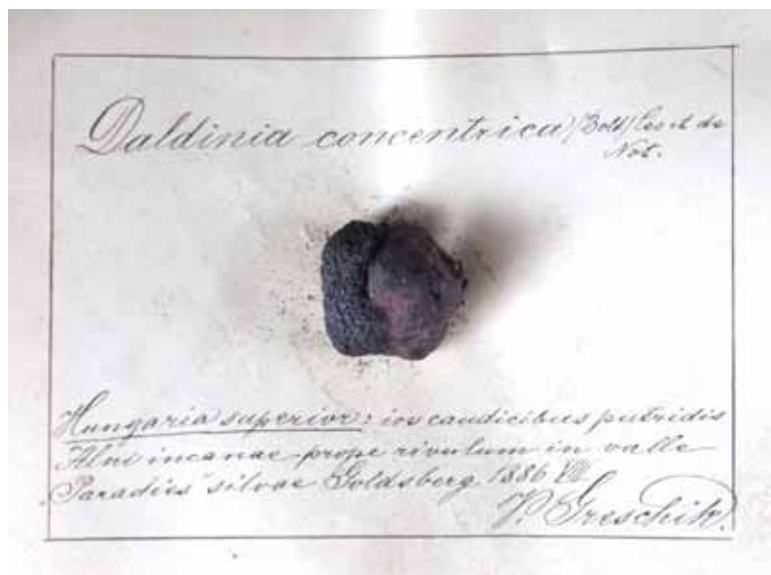 Daldinia concentrica (Bolt) Ces et de
Not.
Hungaria superior: in caudicibus putridis
Alni incanae prope rivulum in valle
„Paradies" silvae Goldsberg 1886 VIII
V. Greschik.